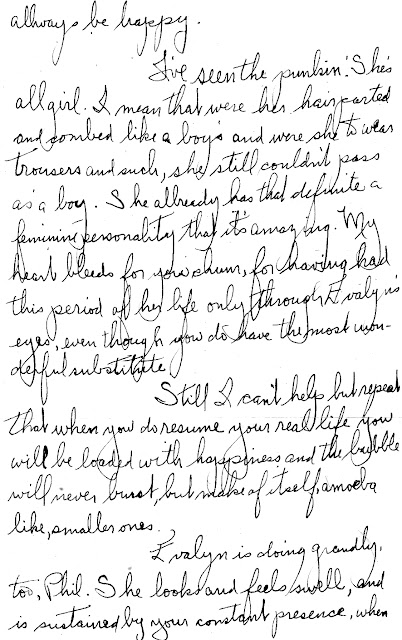 allways be happy.
I've seen the punkin'. She's
all girl. I mean that were her hair parted
and combed like a boy's and were she to wear
trousers and such, she still couldn't pass
as a boy. She allready has that definite a
feminine personality that it's amazing. My
heart bleeds for you chum, for having had
this period of her life only through Evalyn's
eyes, even though you do have the most won-
derful substitute.
Still I can't help but repeat
that when you do resume your real life you
will be loaded with happiness and the bubble
will never burst, but make of itself, amoeba
like, smaller ones.
Evalyn is doing grandly,
too, Phil. She looks and feels swell, and
is sustained by your constant presence, when